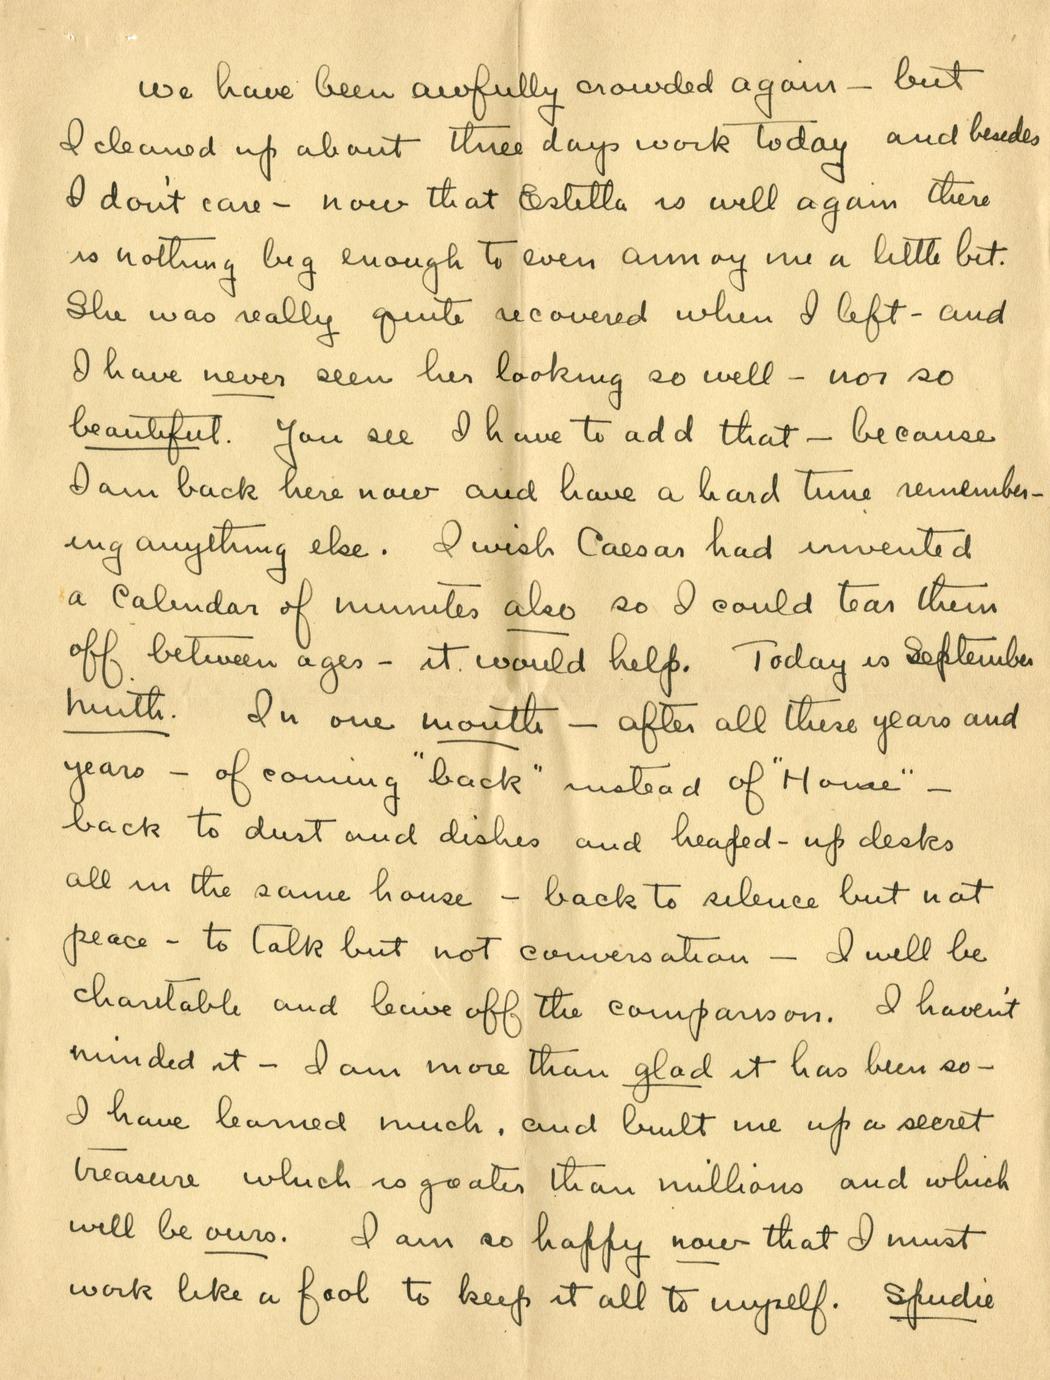 we have been awfully crowded again — but
I cleaned up about three days work today and besides
I don't care – now that Estella is well again there
is nothing big enough to even annoy me a little bit.
She was really quite recovered when I left – and
I have never seen her looking so well – nor so
beautiful. You see I have to add that — because
I am back here now and have a hard time remember-
ing anything else. I wish Caesar had invented
a Calendar of minutes also so I could tear them
off between ages – it would help. Today is September
ninth. In one month — after all these years and
years – of coming "back" instead of "Home" –
back to dust and dishes and heaped-up desks
all in the same house – back to silence but not
peace – to talk but not conversation — I will be
charitable and leave off the comparison. I haven't
minded it – I am more than glad it has been so –
I have learned much, and built me up a secret
treasure which is greater than millions and which
will be ours. I am so happy now that I must
work like a fool to keep it all to myself. Spudie